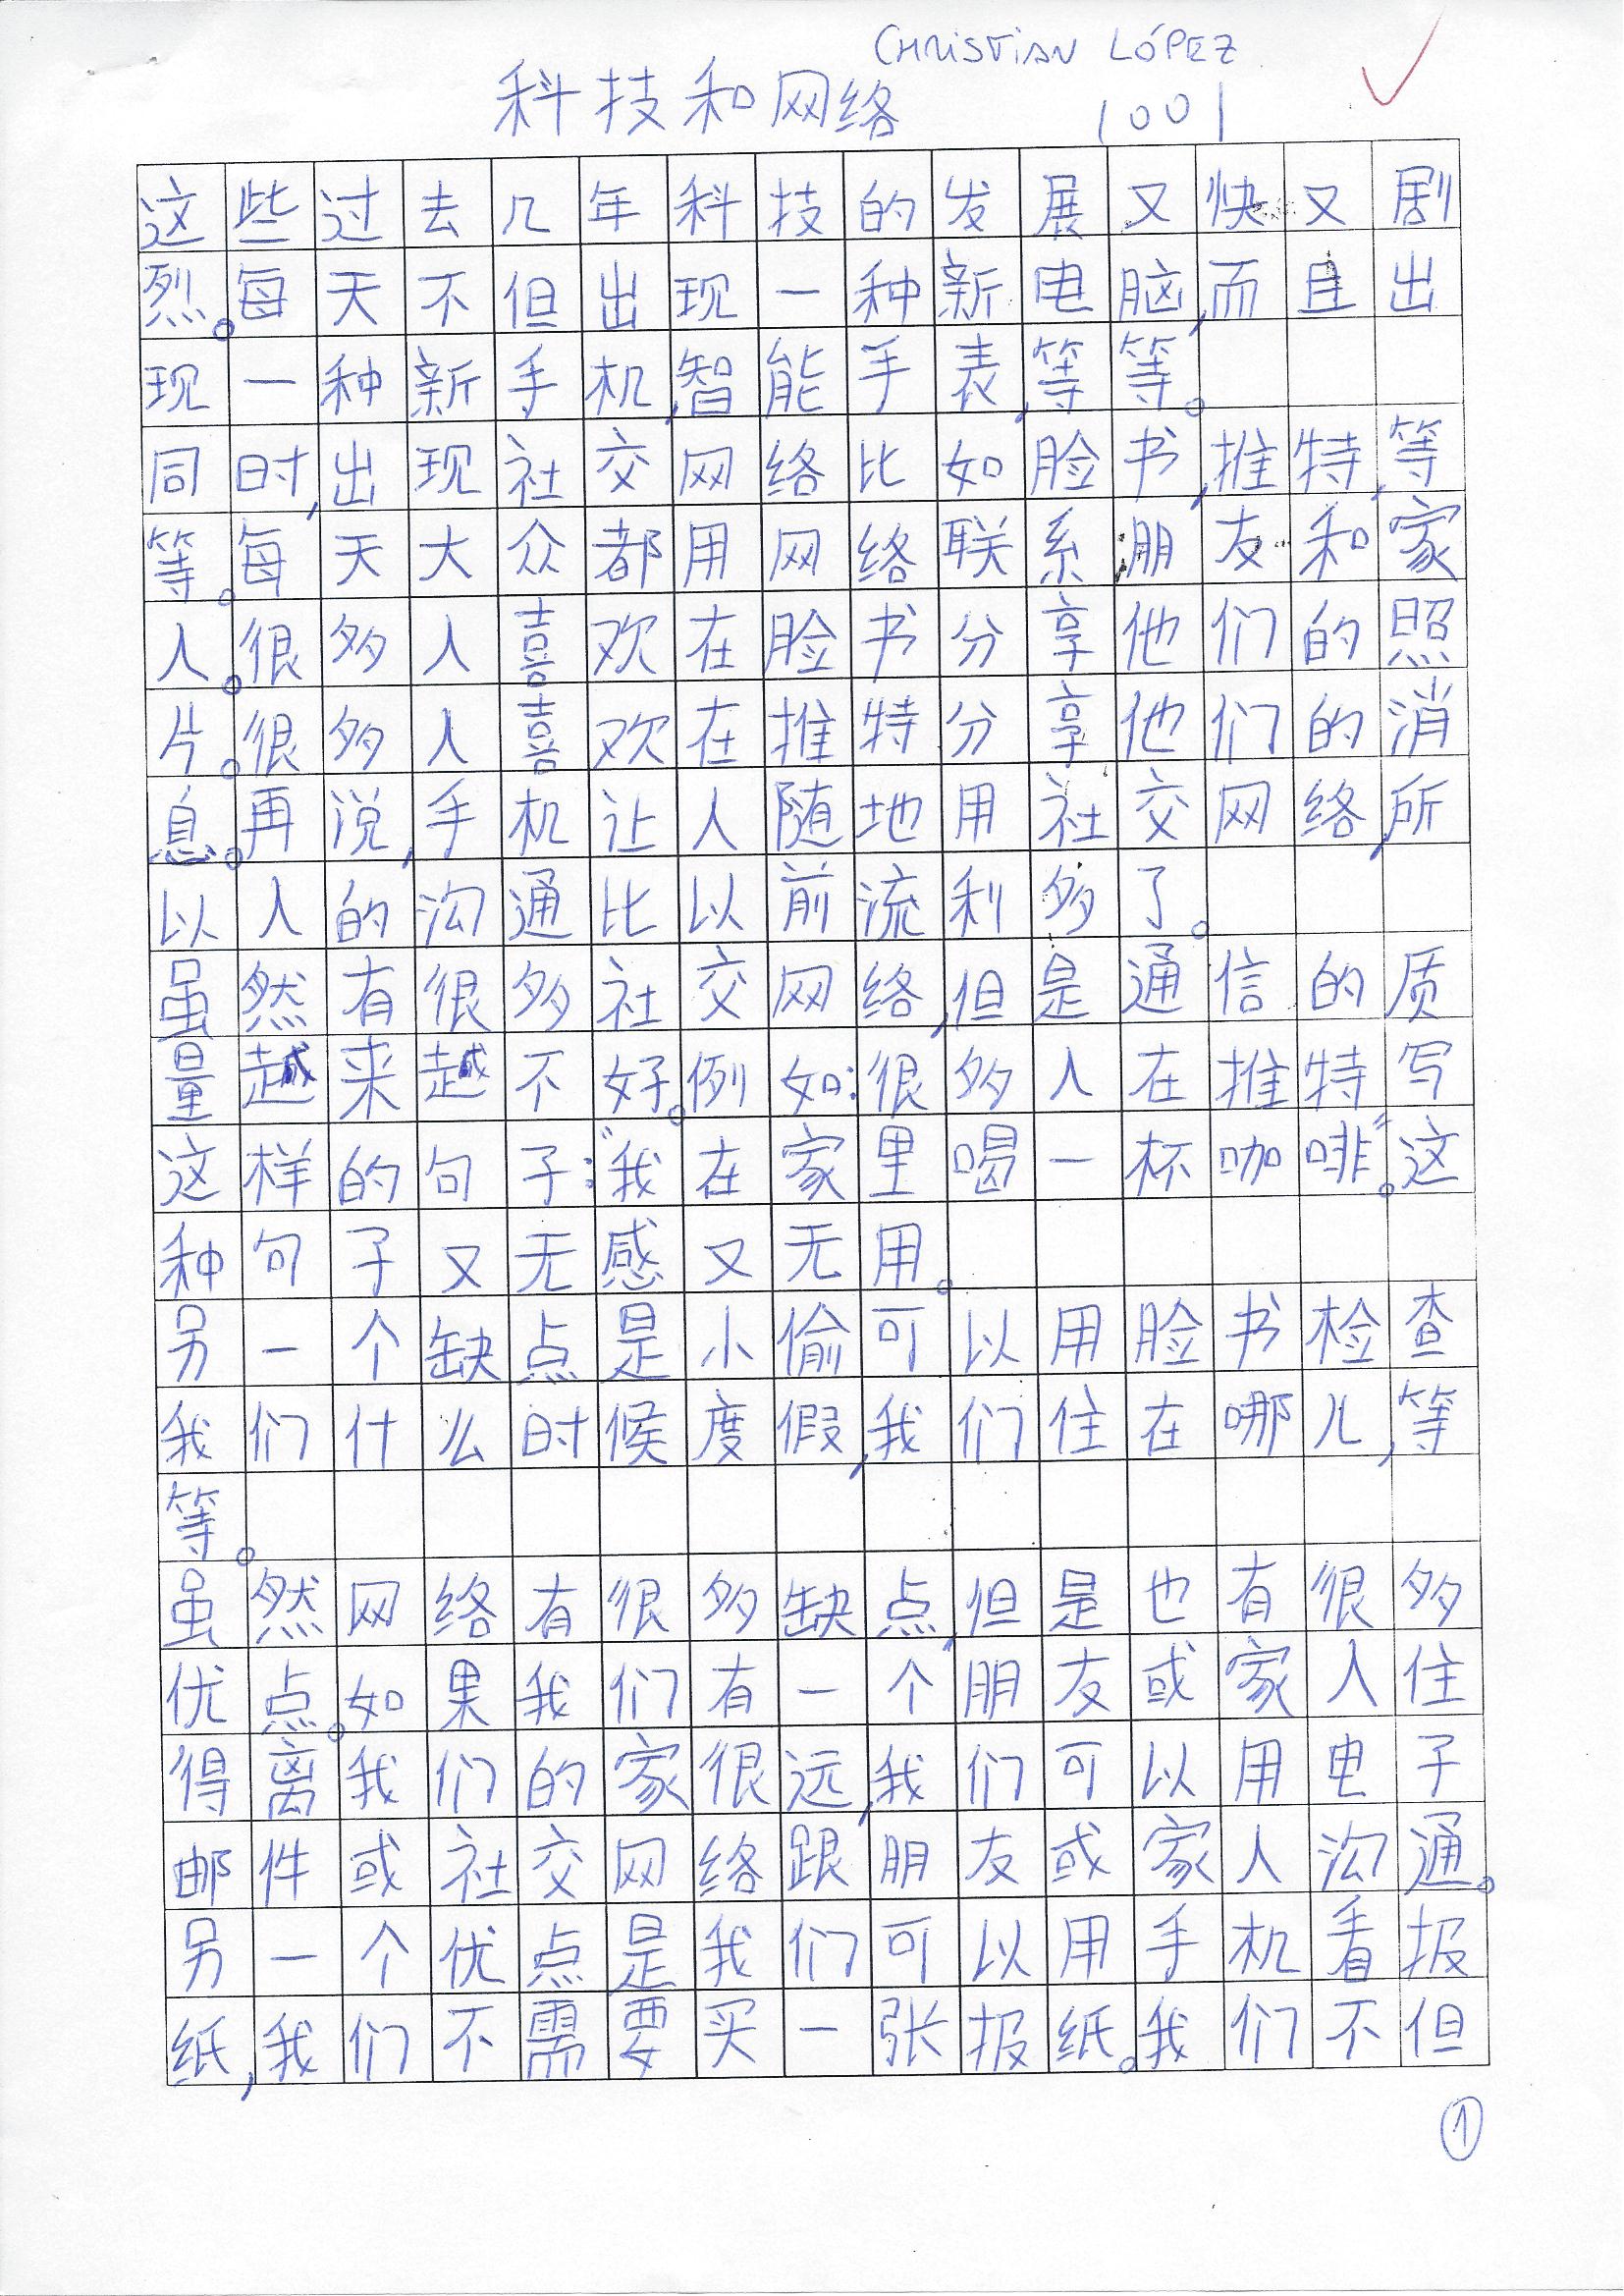 CHRISTIAN LÓPEZ
科技和网络
1001
这些过去几年科技的发展又快又剧
烈。每天不但出现一种新电脑,而且出
现一种新手机,智能手表,等等。
同时,出现社交网络比如脸书,推特,等
等。每天大众都用网络联系朋友和家
人。很多人喜欢在脸书分享他们的照
片。很多人喜欢在推特分享他们的消
息。再说,手机让人随地用社交网络,所
以人的沟通比以前流利多了。
虽然有很多社交网络,但是通信的质
量越来越不好。例如:很多人在推特写
这样的句子:“我在家里喝一杯咖啡”。这
种句子又无感又无用。
另一个缺点是小偷可以用脸书检查
我们什么时候度假,我们住在哪儿,等
等。
虽然网络有很多缺点,但是也有很多
优点。如果我们有一个朋友或家人住
得离我们的家很远,我们可以用电子
邮件或社交网络跟朋友或家人沟通。
另一个优点是我们可以用手机看报
纸,我们不需要买一张报纸。我们不但
1